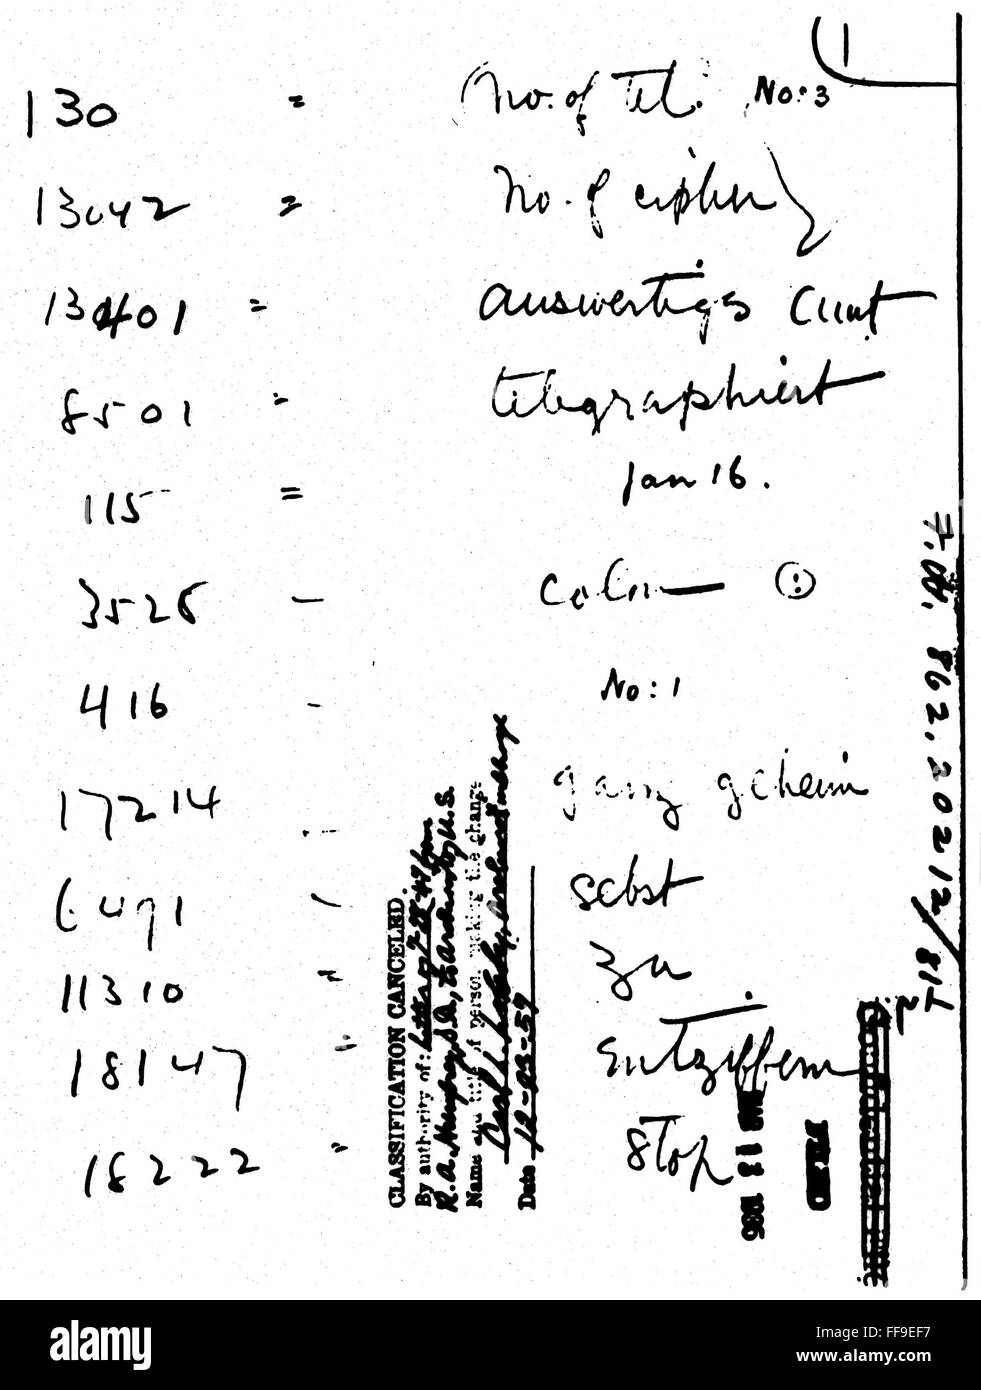 1
130 = (No. of Tel. No: 3
13042 = No. of cipher)
13401 = auswertiges Amt
8501 = telegraphiert
115 = Jan 16.
3528 - colon (:)
416 - No: 1
17214 - ganz geheim
6491 - selbst
11310 = zu
18147 = entziffern
18222 = Stop
CLASSIFICATION CANCELED.
By authority of: letter of
R. A. U.S.
Name and title of person making the change
Date 12-03-59
862.20212/81
FILED
alamy
Image ID: FF9EF7
www.alamy.com